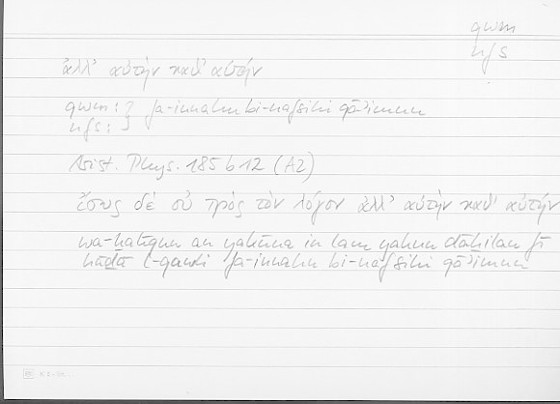 qwm
nfs
ἀλλ' αὐτὴν καθ' αὑτὴν
qwm : } fa-innahu bi-nafsihi qāʾimun
nfs : }
Arist. Phys. 185 b 12 (A2)
ἴσως δὲ οὐ πρὸς τὸν λόγον ἀλλ' αὐτὴν καθ' αὑτὴν
wa-ḫalīqun an yakūna in lam yakun dāḫilan fī
hāḏā l-qawli fa-innahu bi-nafsihi qāʾimun